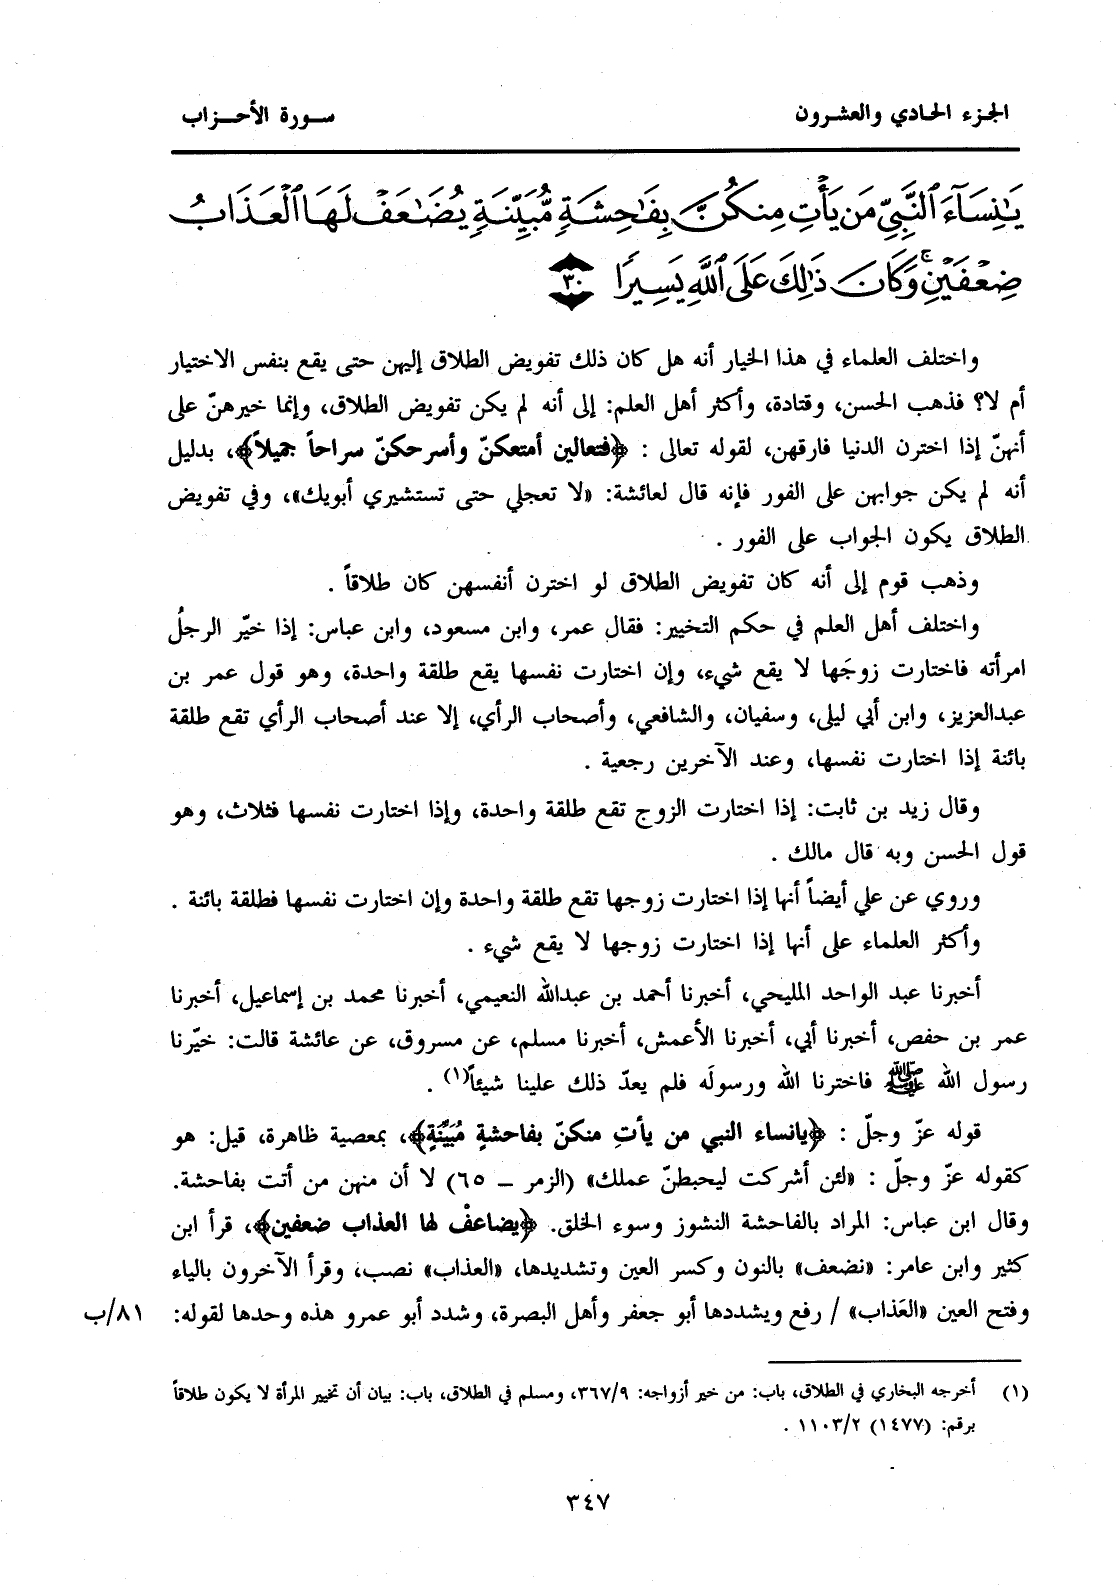 الجزء الحادي والعشرون
سورة الأحزاب
يَٰنِسَآءَ ٱلنَّبِيِّ مَن يَأۡتِ مِنكُنَّ بِفَٰحِشَةٖ مُّبَيِّنَةٖ يُضَٰعَفۡ لَهَا ٱلۡعَذَابُ
ضِعۡفَيۡنِۚ وَكَانَ ذَٰلِكَ عَلَى ٱللَّهِ يَسِيرٗا ٣٠
واختلف العلماء في هذا الخيار أنه هل كان ذلك تفويض الطلاق إليهن حتى يقع بنفس الاختيار
أم لا؟ فذهب الحسن، وقتادة، وأكثر أهل العلم: إلى أنه لم يكن تفويض الطلاق، وإنما خيرهنّ على
أنهنّ إذا اخترن الدنيا فارقهن، لقوله تعالى : ﴿فتعالين أمتعكنّ وأسرحكنّ سراحاً جميلاً﴾، بدليل
أنه لم يكن جوابهن على الفور فإنه قال لعائشة: «لا تعجلي حتى تستشيري أبويك»، وفي تفويض
الطلاق يكون الجواب على الفور .
وذهب قوم إلى أنه كان تفويض الطلاق لو اخترن أنفسهن كان طلاقاً .
واختلف أهل العلم في حكم التخيير: فقال عمر، وابن مسعود، وابن عباس: إذا خيّر الرجلُ
امرأته فاختارت زوجَها لا يقع شيء، وإن اختارت نفسها يقع طلقة واحدة، وهو قول عمر بن
عبدالعزيز، وابن أبي ليلى، وسفيان، والشافعي، وأصحاب الرأي، إلا عند أصحاب الرأي تقع طلقة
بائنة إذا اختارت نفسها، وعند الآخرين رجعية .
وقال زيد بن ثابت: إذا اختارت الزوج تقع طلقة واحدة، وإذا اختارت نفسها فثلاث، وهو
قول الحسن وبه قال مالك .
وروي عن علي أيضاً أنها إذا اختارت زوجها تقع طلقة واحدة وإن اختارت نفسها فطلقة بائنة .
وأكثر العلماء على أنها إذا اختارت زوجها لا يقع شيء .
أخبرنا عبد الواحد المليحي، أخبرنا أحمد بن عبدالله النعيمي، أخبرنا محمد بن إسماعيل، أخبرنا
عمر بن حفص، أخبرنا أبي، أخبرنا الأعمش، أخبرنا مسلم، عن مسروق، عن عائشة قالت: خيّرنا
رسول الله ﷺ فاخترنا الله ورسولَه فلم يعدّ ذلك علينا شيئاً(١) .
قوله عزّ وجلّ : ﴿يانساء النبي من يأتِ منكنّ بفاحشةٍ مُبيِّنَةٍ﴾، بمعصية ظاهرة، قيل: هو
كقوله عزّ وجلّ : «لئن أشركت ليحبطنّ عملك» (الزمر – ٦٥) لا أن منهن من أتت بفاحشة.
وقال ابن عباس: المراد بالفاحشة النشوز وسوء الخلق. ﴿يضاعفْ لها العذاب ضعفين﴾، قرأ ابن
كثير وابن عامر: «نضعف» بالنون وكسر العين وتشديدها، «العذاب» نصب، وقرأ الآخرون بالياء
وفتح العين «العَذاب» / رفع ويشددها أبو جعفر وأهل البصرة، وشدد أبو عمرو هذه وحدها لقوله: ٨١/ب
(١) أخرجه البخاري في الطلاق، باب: من خير أزواجه: ٣٦٧/٩، ومسلم في الطلاق، باب: بيان أن تخيير المرأة لا يكون طلاقاً
برقم: (١٤٧٧) ١١٠٣/٢ .
٣٤٧